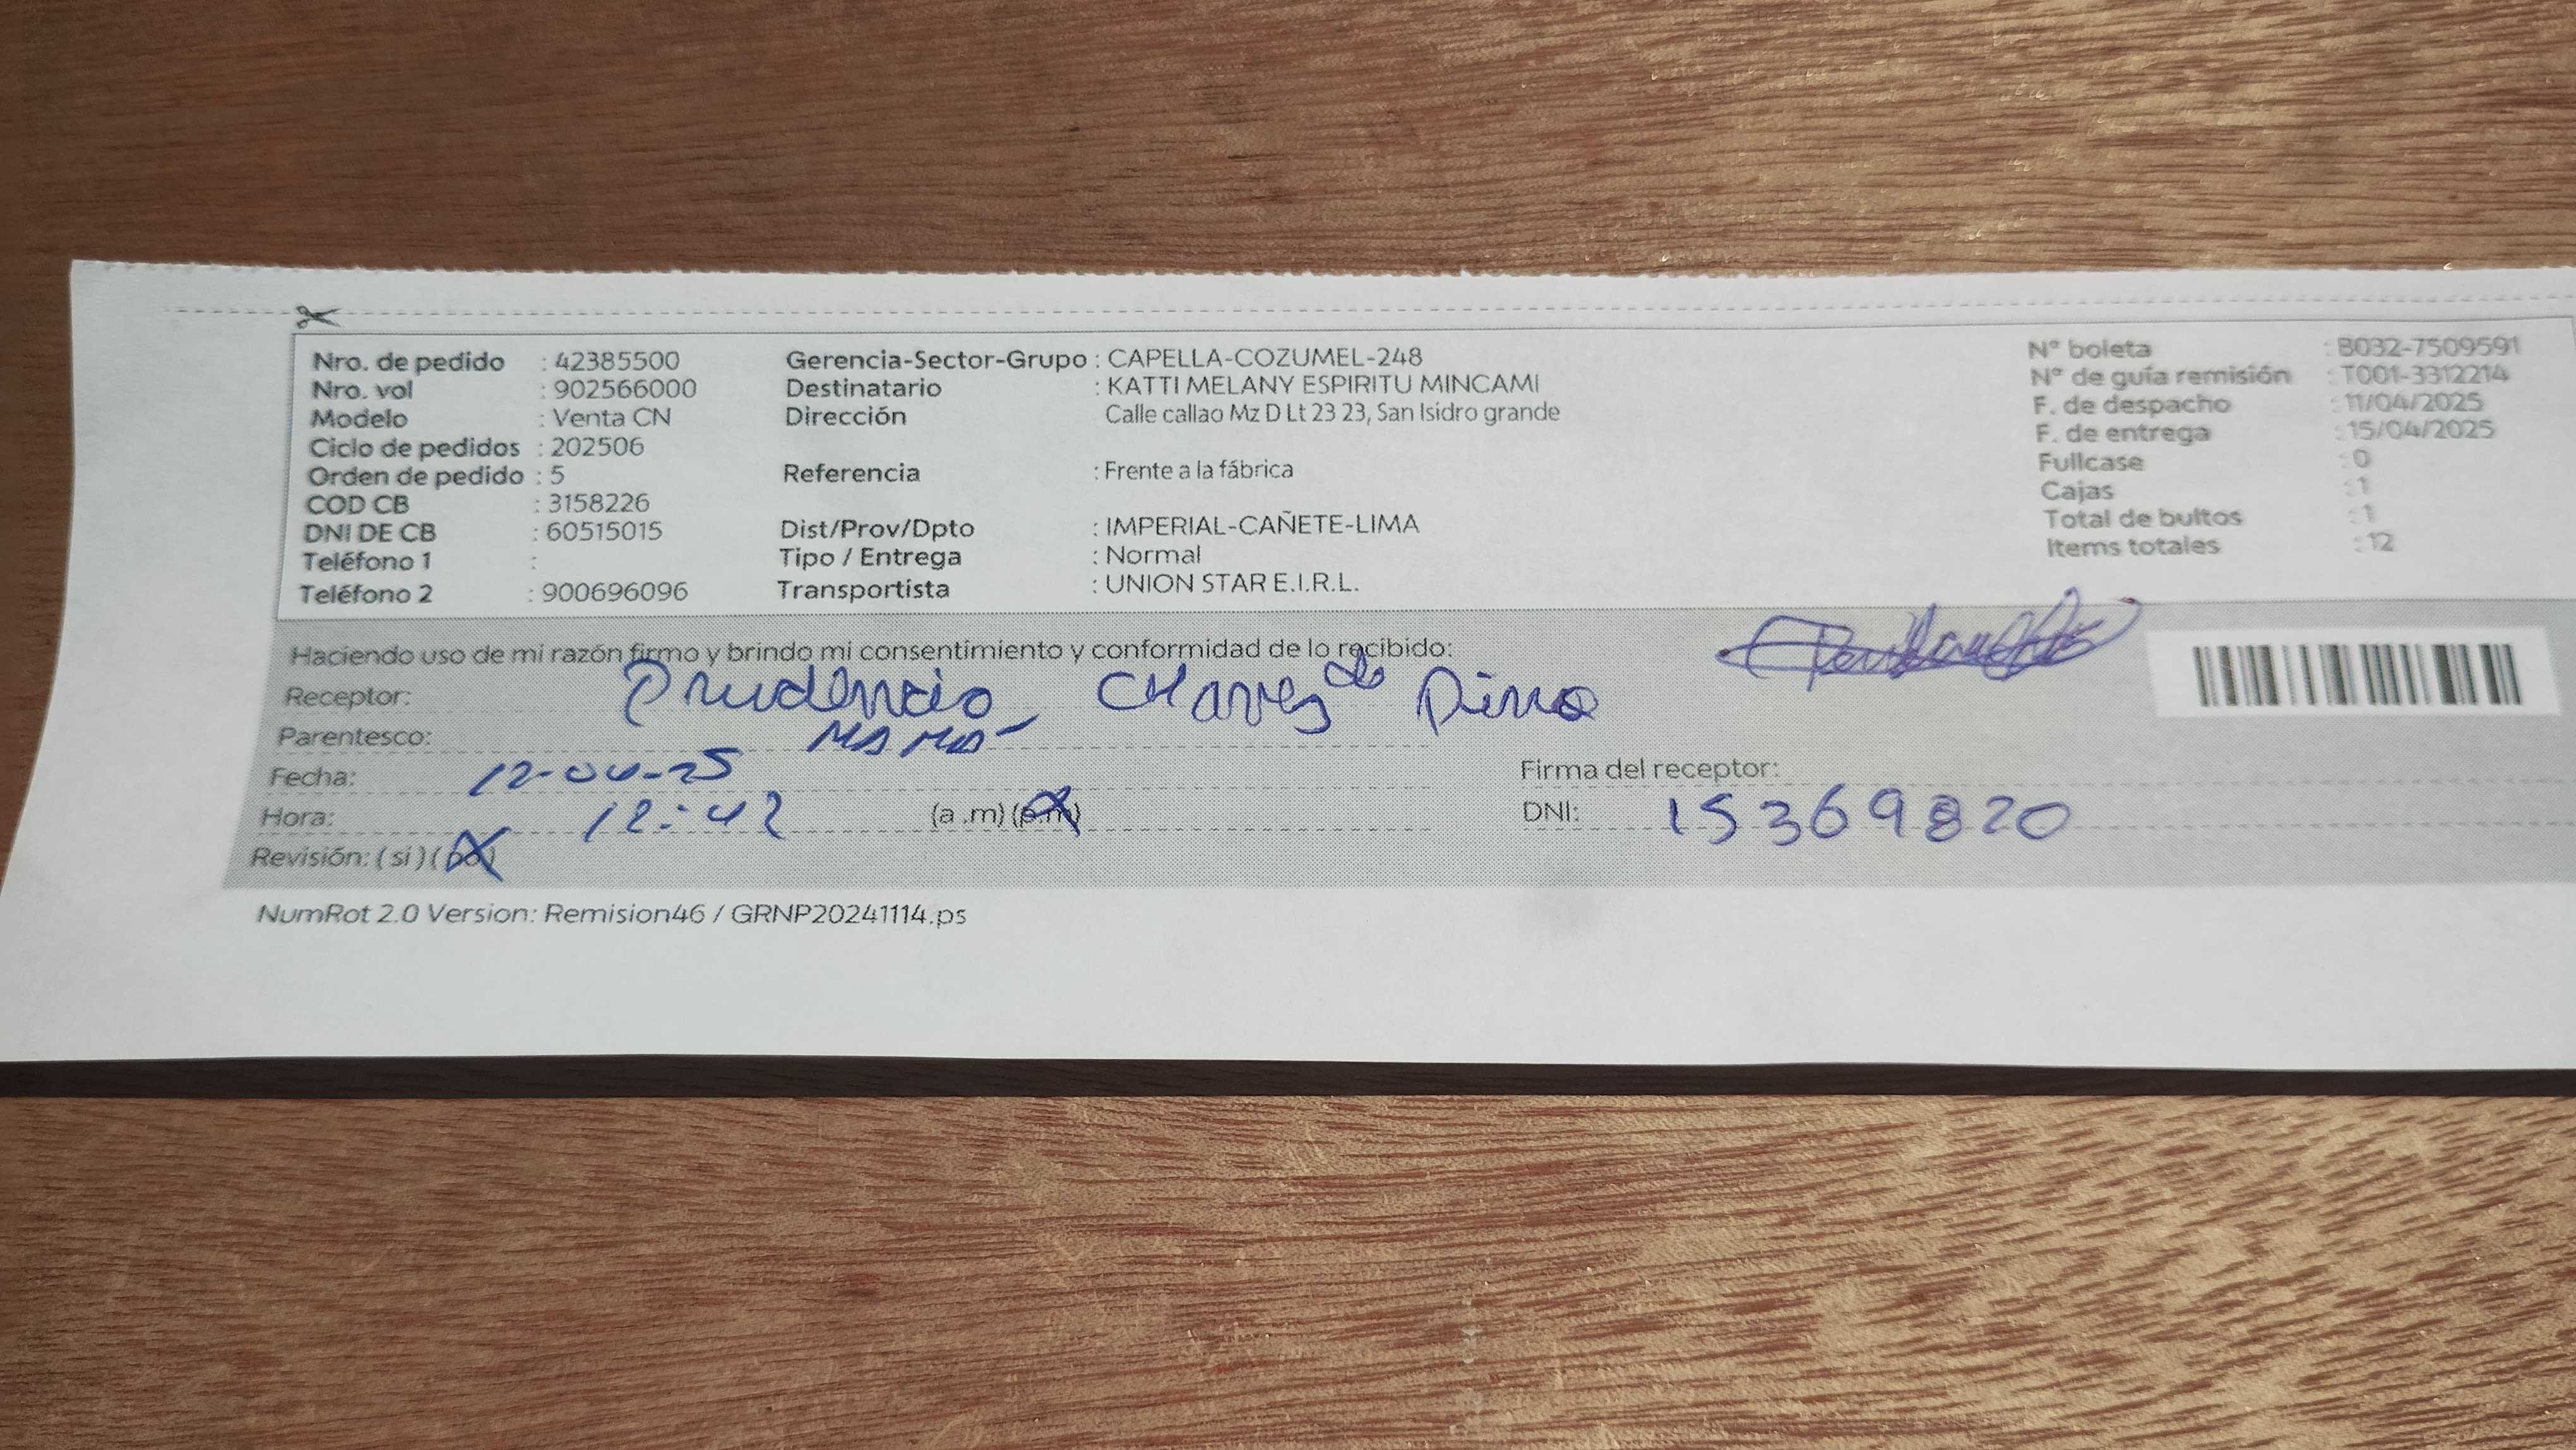 Nro. de pedido : 42385500 Gerencia-Sector-Grupo : CAPELLA-COZUMEL-248 N° boleta : B032-7509591
Nro. vol : 902566000 Destinatario : KATTI MELANY ESPIRITU MINCAMI N° de guía remisión : T001-3312214
Modelo : Venta CN Dirección Calle callao Mz D Lt 23 23, San Isidro grande F. de despacho : 11/04/2025
Ciclo de pedidos : 202506 F. de entrega : 15/04/2025
Orden de pedido : 5 Referencia : Frente a la fábrica Fullcase : 0
COD CB : 3158226 Cajas : 1
DNI DE CB : 60515015 Dist/Prov/Dpto : IMPERIAL-CAÑETE-LIMA Total de bultos : 1
Teléfono 1 : Tipo / Entrega : Normal Items totales : 12
Teléfono 2 : 900696096 Transportista : UNION STAR E.I.R.L.
Haciendo uso de mi razón firmo y brindo mi consentimiento y conformidad de lo recibido:
Receptor: Prudencio Chavez de
Parentesco: MAMA
Fecha: 12-04-25 Firma del receptor:
Hora: 12:42 (a .m) (p.m) DNI: 15369820
Revisión: ( si ) ( no )
NumRot 2.0 Version: Remision46 / GRNP20241114.ps